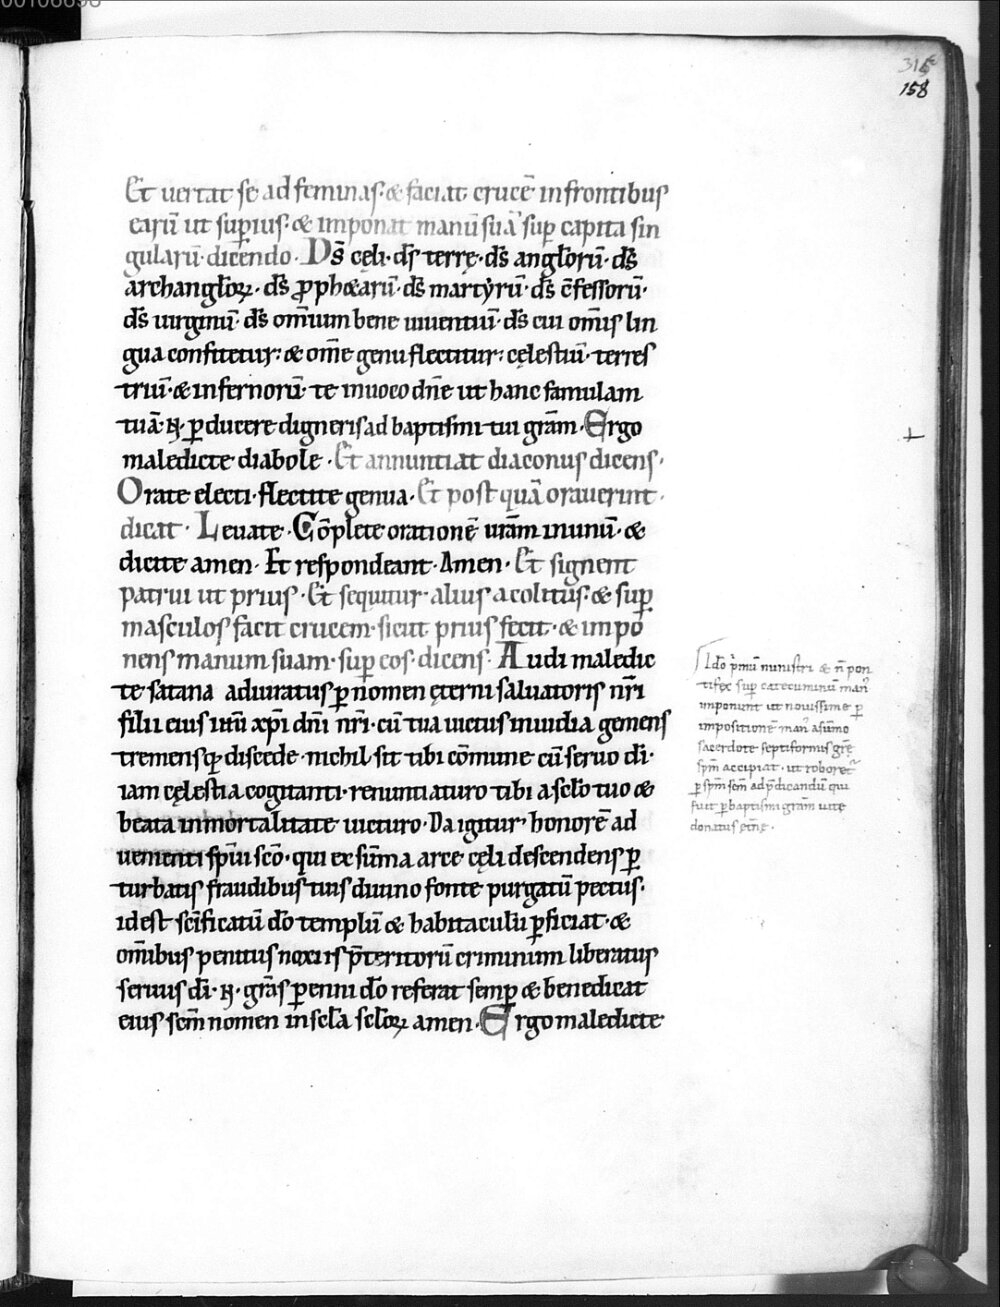 315
158
Et uertat se ad feminas· & faciat crucē in frontibus
earū ut supius· & imponat manū suā sup capita sin
gularū dicendo· Ds̄ cęli· ds̄ terrę· ds̄ angłorū· ds̄
archangłoꝝ· ds̄ ꝓphetarū· ds̄ martyrū· ds̄ c̄fessorū·
ds̄ uirginū· ds̄ om̄ium bene uiuentiū· ds̄ cui om̄is lin
gua confitetur: & om̄e genu flectitur: cęlestiū· terres
triū· & infernorū· te inuoco dn̄e ut hanc famulam
tuā· N· ꝑducere digneris ad baptismi tui grām· Ergo
maledicte diabole· Et annuntiat diaconus dicens·
Orate electi· flectite genua· Et post quā orauerint·
dicat· Leuate· Cōplete orationē ur̄am in unū· &
dicite amen· Et respondeant· Amen· Et signent
patrini ut prius· Et sequitur alius acolitus· & sup
masculos facit crucem· sicut prius fecit· & impo
nens manum suam· sup eos· dicens· Audi maledic
te satana adiuratus ꝑ nomen ęterni saluatoris nr̄i
filii eius ihū xp̄i dn̄i nr̄i· cū tua uictus inuidia gemens
tremensq; discede· nichil sit tibi cōmune cū seruo dī·
iam cęlestia cogitanti· renuntiaturo tibi a scło tuo &
beata inmortalitate uicturo· Da igitur honorē ad
uenienti sp̄ui scō· qui ex sūma arce cęli descendens ꝑ
turbatis fraudibus tuis diuino fonte purgatū pectus·
id est scīficatū dō templū & habitaculū ꝑficiat· &
om̄ibus penitus noxiis p̄teritorū criminum liberatus
seruus dī· N· grās ꝑenni dō referat semꝑ & benedicat
eius scm̄ nomen in scła scłoꝝ amen· Ergo maledicte
Idō p̄mū ministri & n̄ pon
tifex sup catecuminū manū
imponunt ut nouissime ꝑ
impositionē man̄ a sūmo
sacerdote septiformis grę
spm̄ accipiat· ut roboret̄
ꝑ spm̄ scm̄ ad p̄dicandū qui
fuit ꝑ baptismi grām uite
donatus etn̄ę·